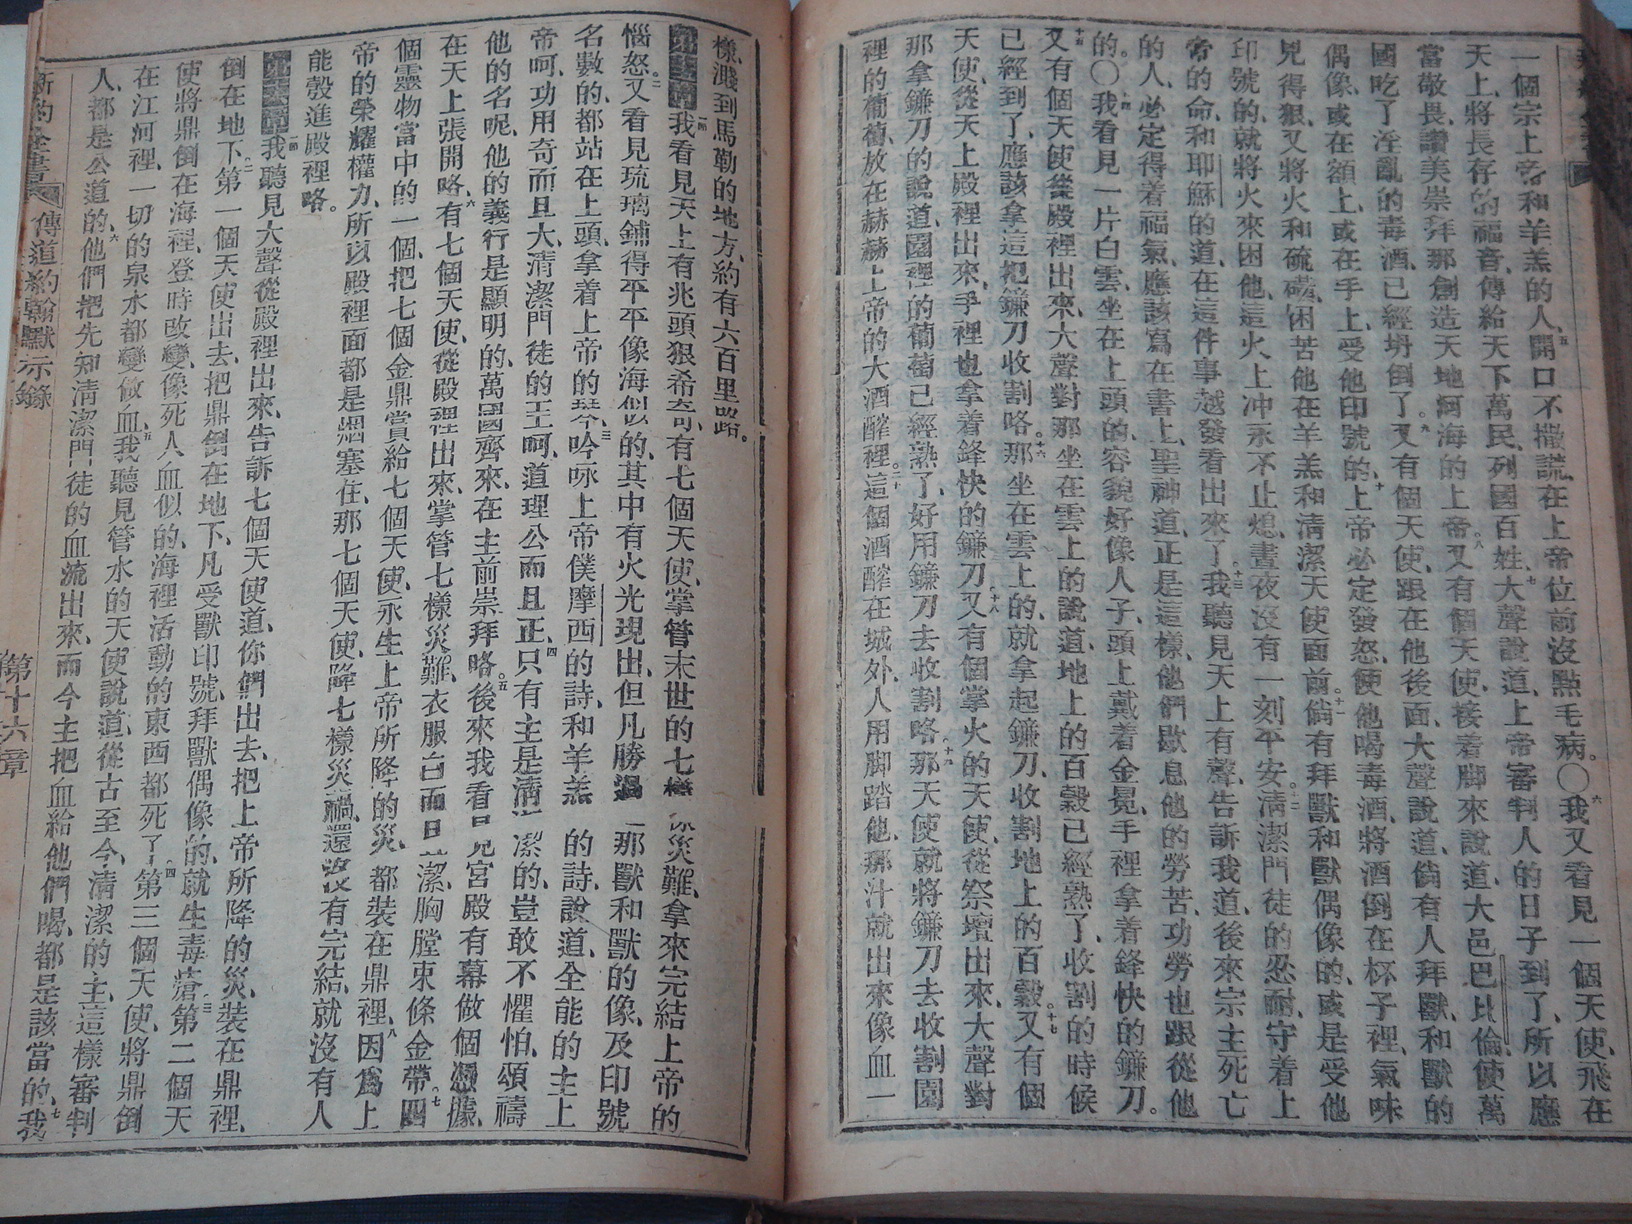 一個宗上帝和羊羔的人、五開口不撒謊、在上帝位前沒點毛病。〇六我又看見一個天使、飛在
天上、將長存的福音、傳給天下萬民、列國百姓、七大聲說道、上帝審判人的日子到了、所以應
富敬畏、讚美崇拜那創造天地河海的上帝。八又有個天使、接着脚來說道、大邑巴比倫、使萬
國吃了淫亂的毒酒、已經坍倒了。九又有個天使、跟在他後面、大聲說道、倘有人拜獸和獸的
偶像、或在額上、或在手上、受他印號的、十上帝必定發怒、使他喝毒酒、將酒倒在杯子裡、氣味
兒得狠、又將火和硫磺、困苦他在羊羔和清潔天使面前。十一倘有拜獸和獸偶像的、或是受他
印號的、就將火來困他、這火上冲、永不止熄、晝夜沒有一刻平安。十二清潔門徒的忍耐、守着上
帝的命、和耶穌的道、在這件事、越發看出來了。十三我聽見天上有聲、告訴我道、後來宗主死亡
的人、必定得着福氣、應該寫在書上、聖神道、正是這樣、他們歇息他的勞苦、功勞也跟從他
的。〇十四我看見一片白雲、坐在上頭的、容貌好像人子、頭上戴着金冕、手裡拿着鋒快的鐮刀。
十五又有個天使從殿裡出來、大聲對那坐在雲上的說道、地上的百穀已經熟了、收割的時候
已經到了、應該拿這把鐮刀收割略。十六那坐在雲上的、就拿起鐮刀、收割地上的百穀。十七又有個
天使、從天上殿裡出來、手裡也拿着鋒快的鐮刀、十八又有個掌火的天使、從祭壇出來、大聲對
那拿鐮刀的說道、園裡的葡萄已經熟了、好用鐮刀去收割略、十九那天使就將鐮刀去收割園
裡的葡萄、放在赫赫上帝的大酒醡裡。二十這個酒醡在城外、人用脚踏他、那汁就出來像血一
樣、濺到馬勒的地方、約有六百里路。
第十五章一節我看見天上有兆頭狠希奇、有七個天使、掌管末世的七樣災難、拿來完結上帝的
惱怒。二又看見琉璃鋪得平平像海似的、其中有火光現出、但凡勝過那獸和獸的像、及印號
名數的、都站在上頭、拿着上帝的琴、三吟咏上帝僕摩西的詩、和羊羔的詩、說道、全能的主上
帝呵、功用奇而且大、清潔門徒的王呵、道理公而且正、四只有主是清潔的、豈敢不懼怕、頌禱
他的名呢、他的義行是顯明的、萬國齊來、在主前崇拜略。五後來我看見宮殿有幕做個憑據、
在天上張開略、六有七個天使、從殿裡出來、掌管七樣災難、衣服白而且潔、胸膛束條金帶。七四
個靈物當中的一個、把七個金鼎賞給七個天使、永生上帝所降的災、都裝在鼎裡、八因爲上
帝的榮耀權力、所以殿裡面都是烟塞住、那七個天使、降七樣災禍、還沒有完結、就沒有人
能彀進殿裡略。
第十六章一節我聽見大聲從殿裡出來、告訴七個天使道、你們出去、把上帝所降的災、裝在鼎裡、
倒在地下。二第一個天使出去、把鼎倒在地下、凡受獸印號、拜獸偶像的、就生毒瘡。三第二個天
使將鼎倒在海裡、登時改變、像死人血似的、海裡活動的東西都死了。四第三個天使、將鼎倒
在江河裡、一切的泉水都變做血、五我聽見管水的天使說道、從古至今、清潔的主、這樣審判
人、都是公道的、六他們把先知清潔門徒的血流出來、而今主把血給他們喝、都是該當的、七我
新約全書 傳道約翰默示錄 第十六章